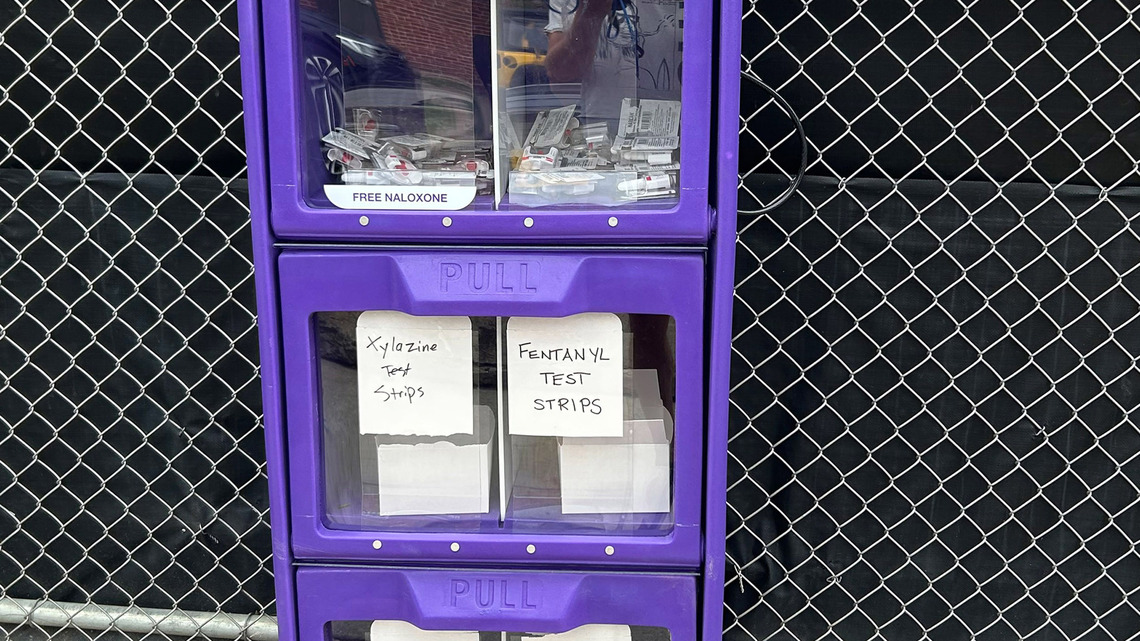 FREE NALOXONE
PULL
Xylazine
Test
Strips
FENTANYL
TEST
STRIPS
PULL